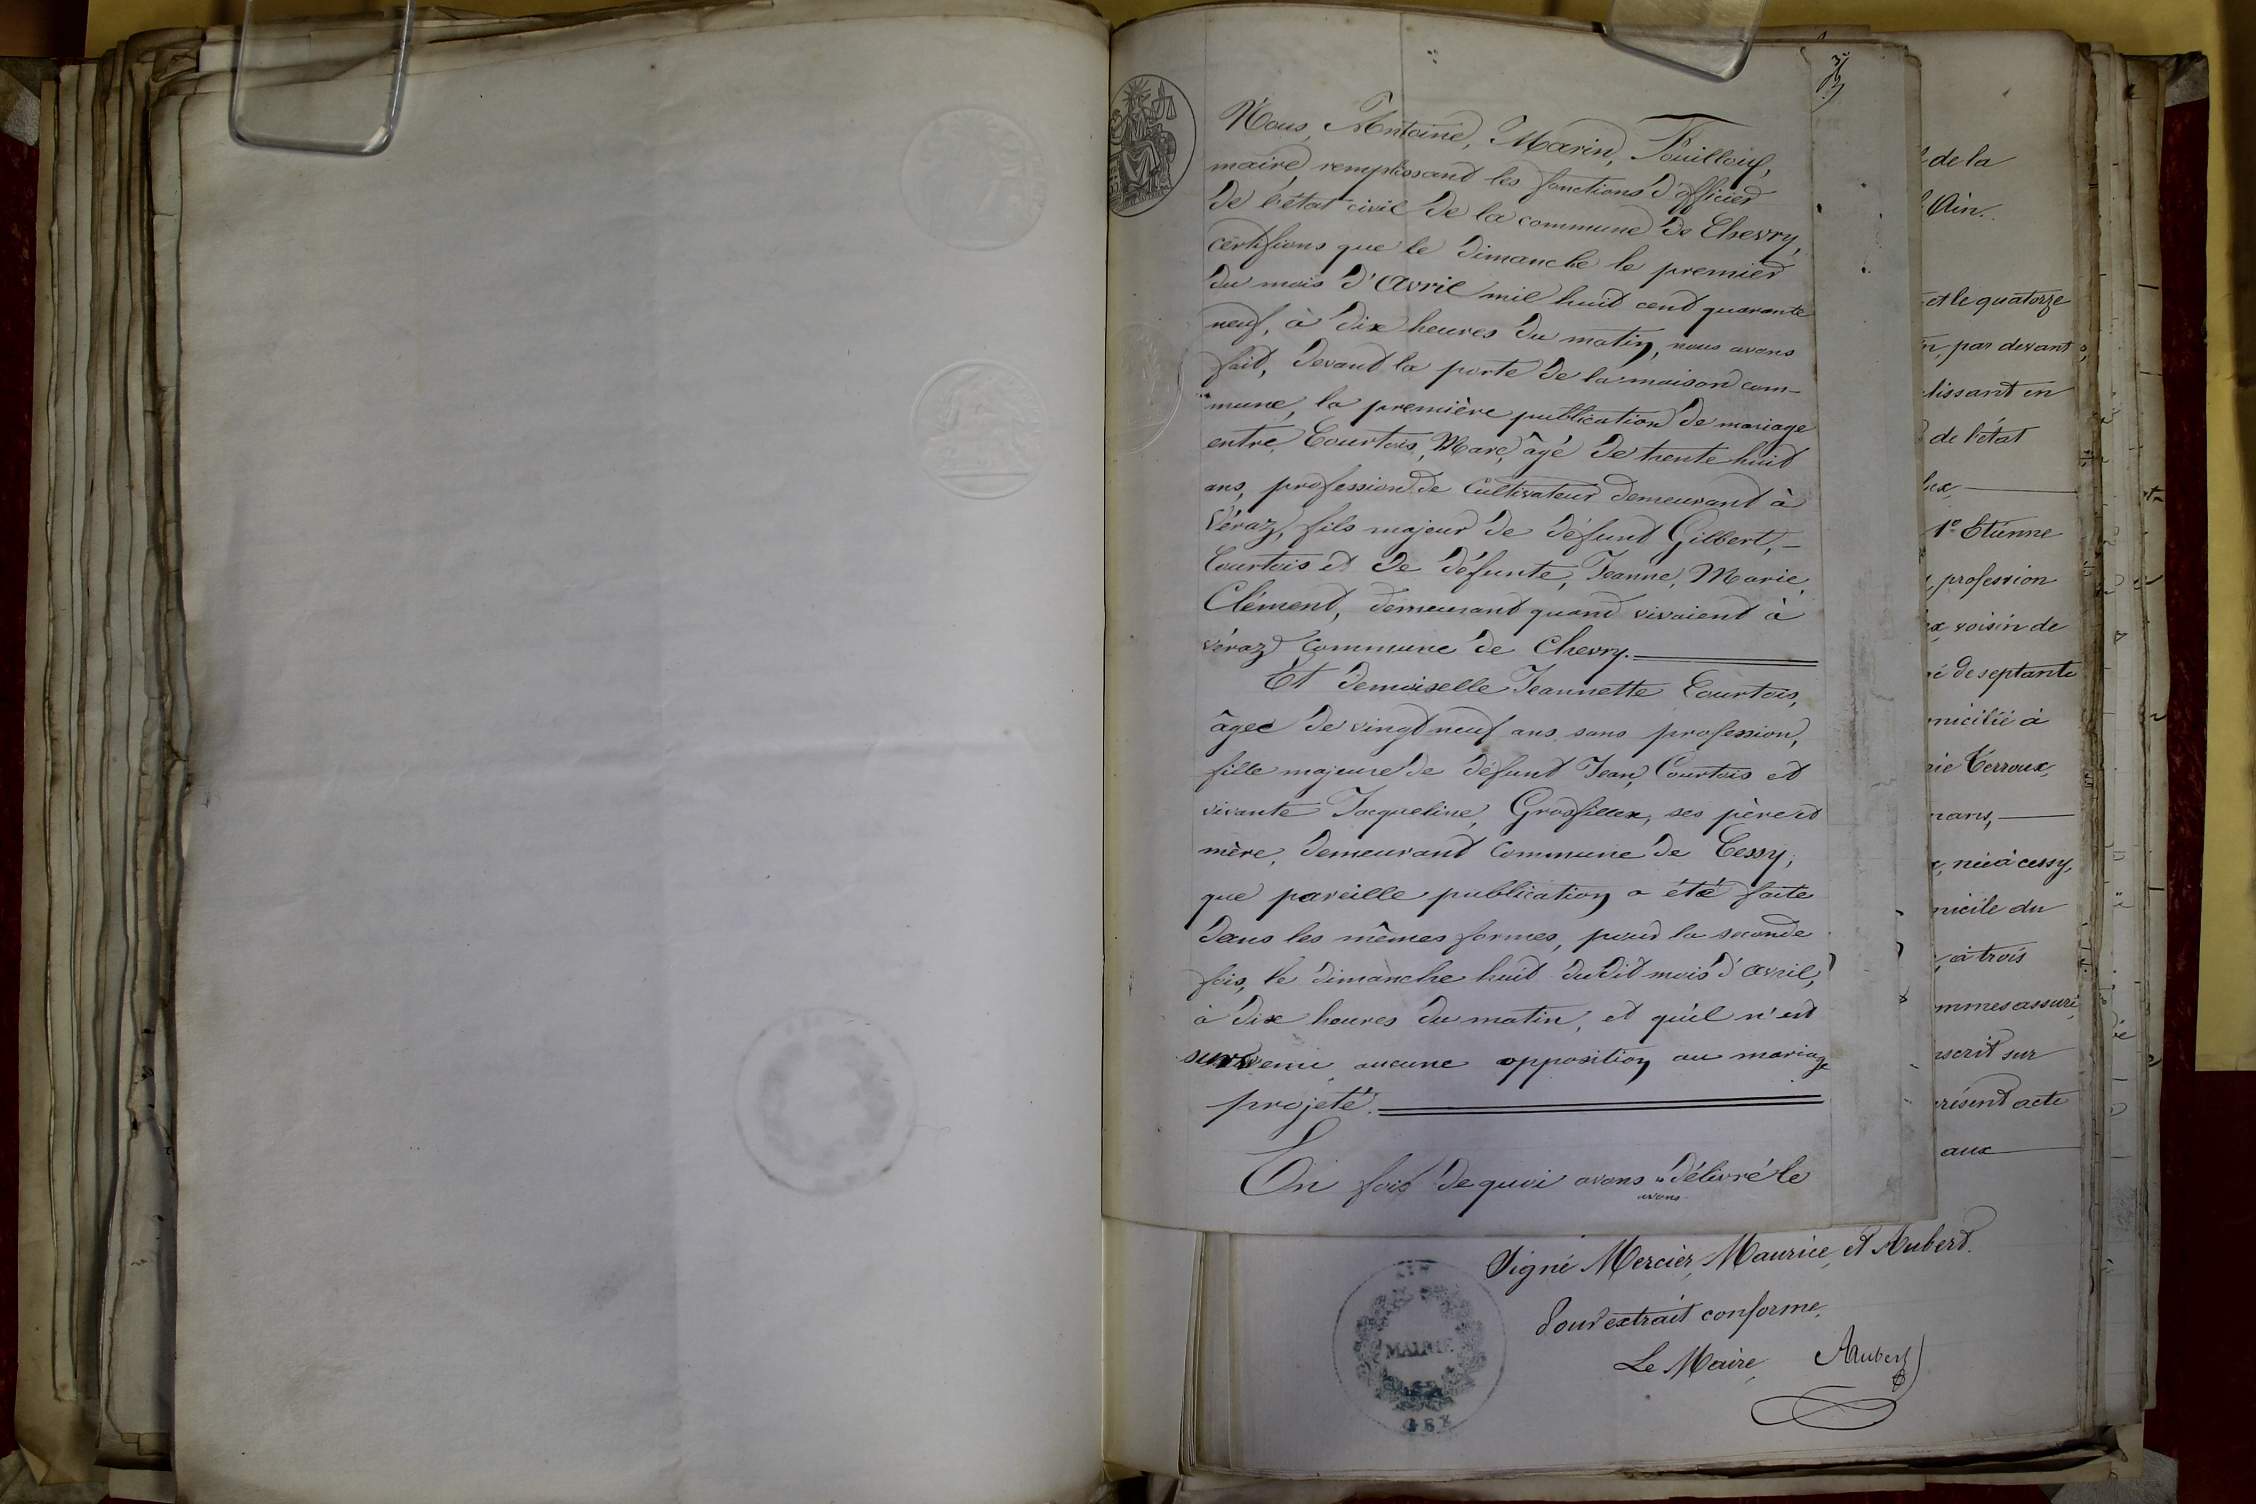 Nous, Antoine, Marin, Fouilloux,
maire, remplissant les fonctions d'officier
de l'état civil de la commune de Chevry,
certifions que le dimanche le premier
du mois d'Avril mil huit cent quarante
neuf, à dix heures du matin, nous avons
fait, devant la porte de la maison com-
mune, la première publication de mariage
entre Courtois, Marc, âgé de trente huit
ans, profession de Cultivateur demeurant à
Véraz, fils majeur de défunt Gilbert, -
Courtois et de défunte, Jeanne, Marie,
Clément, demeurant quand vivaient à
véraz commune de Chevry.
Et demoiselle Jeannette Courtois,
âgée de vingt neuf ans sans profession,
fille majeure de défunt Jean, Courtois et
vivante Jacqueline, Grosfillex, ses père et
mère, demeurant Commune de Cessy;
que pareille publication a été faite
dans les mêmes formes, pour la seconde
fois, le dimanche huit dudit mois d'avril,
à dix heures du matin, et qu'il n'est
survenu aucune opposition au mariage
projeté.
En foi de quoi avons délivré le
avons
de la
l'Ain.
et le quatorze
par devant
lissant en
de l'état
1° Etienne
profession
voisin de
de septante
micilié à
rie Terroux,
née à cessy,
micile du
à trois
mmes assuré
nscrit sur
résent acte
aux
Signé Mercier, Maurice, et Aubert.
Pour extrait conforme,
Le Maire, Aubert
MAIRIE
GEX